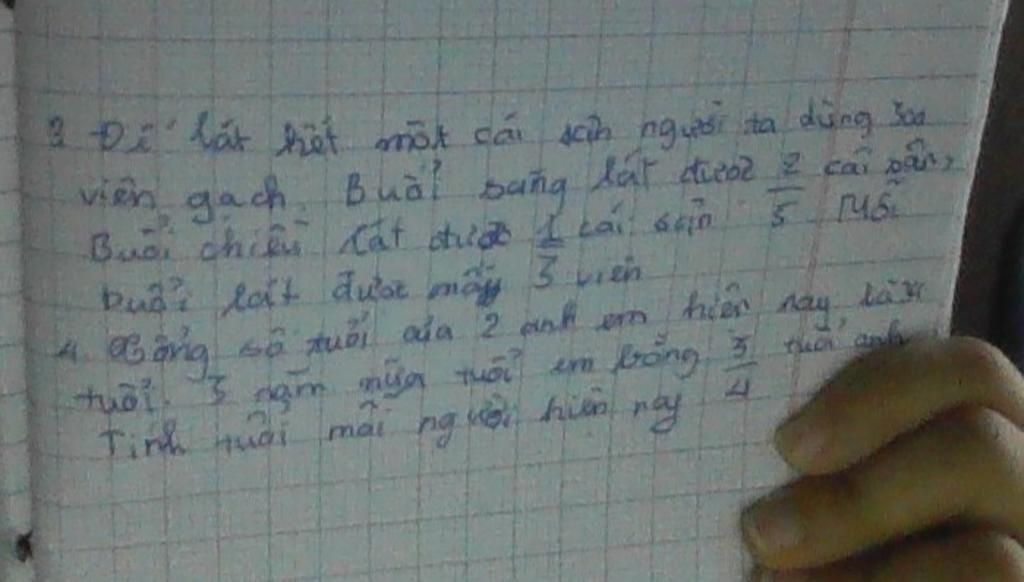 3 Để lát hết một cái sân người ta dùng 300
viên gạch. Buổi sáng lát được 2/5 cái sân,
Buổi chiều lát được 1/3 cái sân Mỗi
buổi lát được mấy viên
4. Tổng số tuổi của 2 anh em hiện nay là
tuổi. 3 năm nữa tuổi em bằng 3/4 tuổi anh
Tính tuổi mỗi người hiện nay